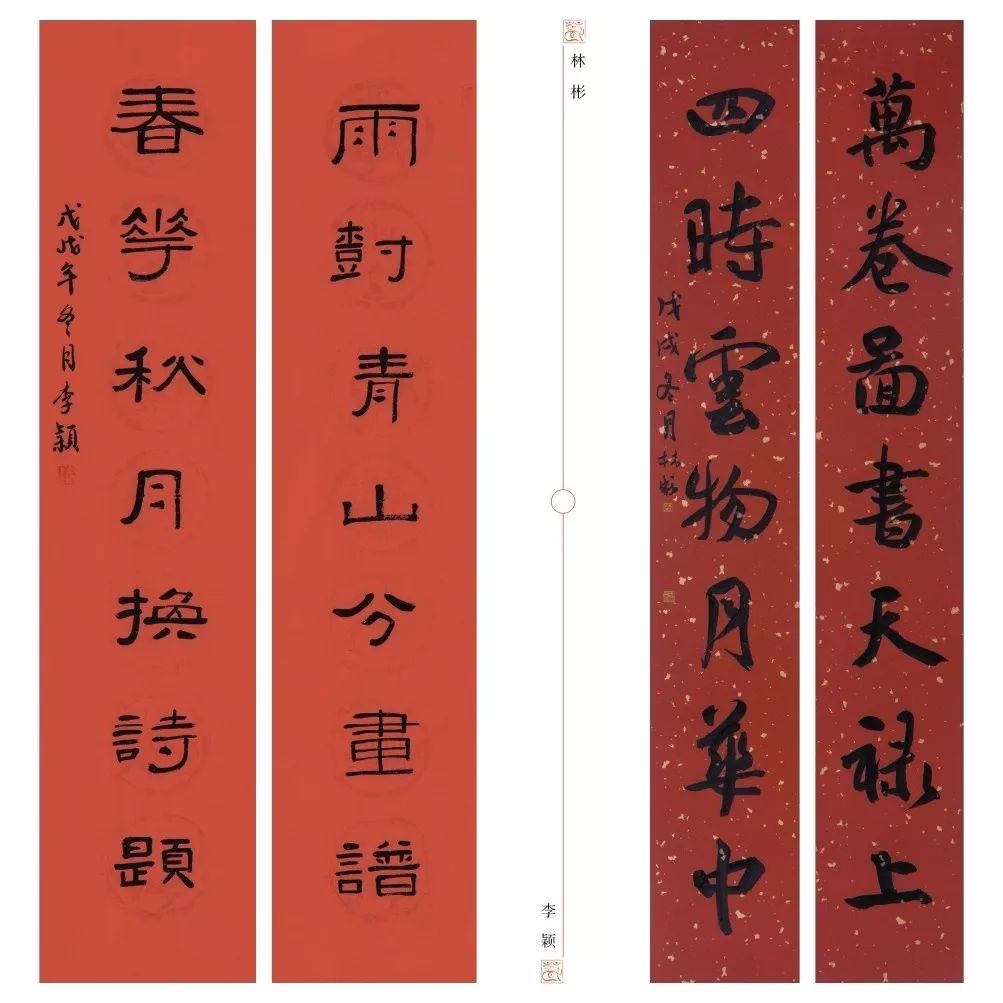 萬卷圖書天禄上
四時雲物月華中
戊戌冬月林彬
林彬
李颖
雨樹青山分畫譜
春華秋月換詩題
戊戌年冬月李穎